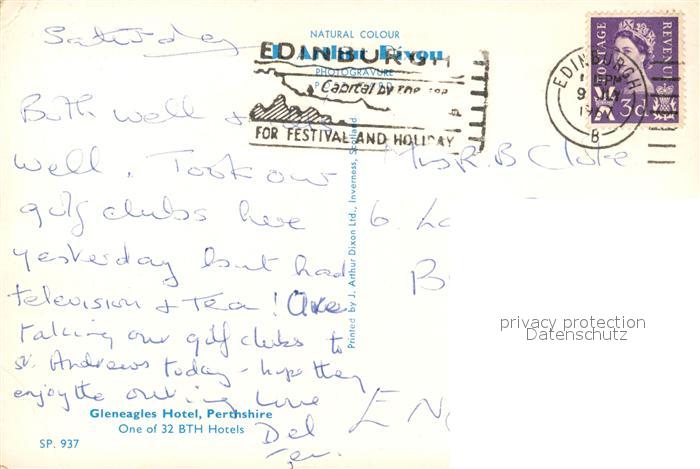 Saturday
NATURAL COLOUR
J. Arthur Dixon
PHOTOGRAVURE
EDINBURGH
Capital by the sea
FOR FESTIVAL AND HOLIDAY
EDINBURGH
PM
9
19
B
POSTAGE
REVENUE
3d
Both well &
well. Took our
golf clubs here
yesterday but had
television & Tea! Are
taking our golf clubs to
St. Andrews today - hope they
enjoy the outing Love
Printed by J. Arthur Dixon Ltd., Inverness, Scotland
Mrs R. B
6
B
EN
Gleneagles Hotel, Perthshire
One of 32 BTH Hotels
SP. 937
privacy protection
Datenschutz